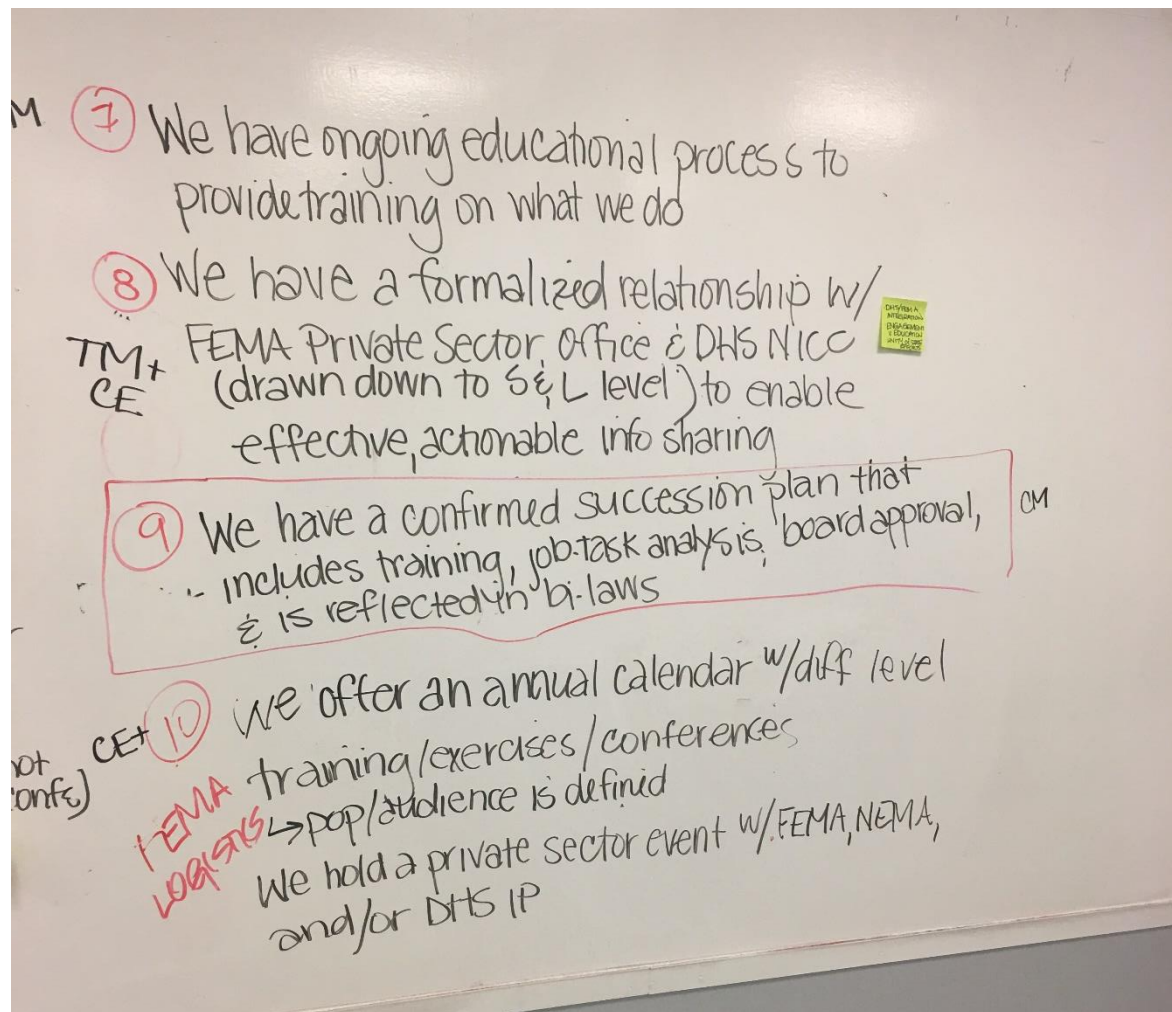 M ⑦ We have ongoing educational process to
provide training on what we do
⑧ We have a formalized relationship w/
FEMA Private Sector Office & DHS NICC
(drawn down to S & L level) to enable
effective, actionable info sharing
TM+
CE
DHS/FEMA
INTEGRATION
ENGAGEMENT
& EDUCATION
UNITY of
EFFORTS
⑨ We have a confirmed succession plan that
includes training, job-task analysis, board approval,
& is reflected in bi-laws
CM
CE+ ⑩ We offer an annual calendar w/diff level
training/exercises/conferences
↳ pop/audience is defined
We hold a private sector event w/ FEMA, NEMA,
and/or DHS IP
FEMA
LOGISTICS